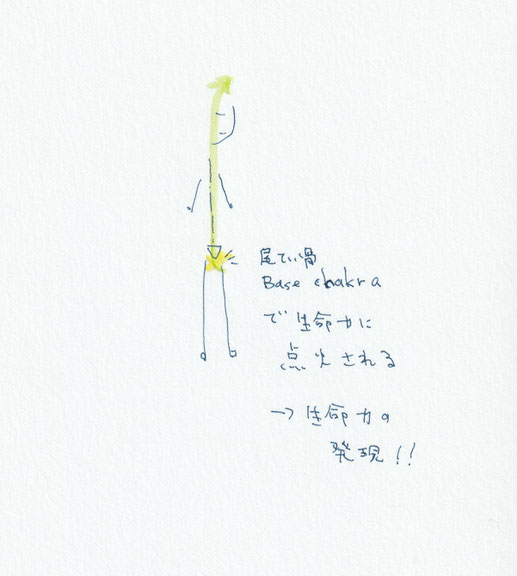 尾てい骨
Base chakra
で生命力に
点火される
→生命力の
発現!!